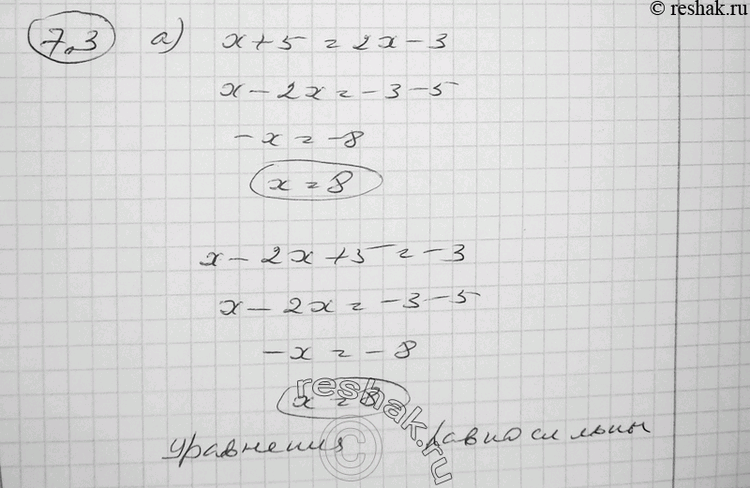 © reshak.ru
7.3 а) x+5 = 2x-3
x-2x=-3-5
-x=-8
x=8
x-2x+5=-3
x-2x=-3-5
-x=-8
x=8
уравнения равносильны
reshak.ru
©